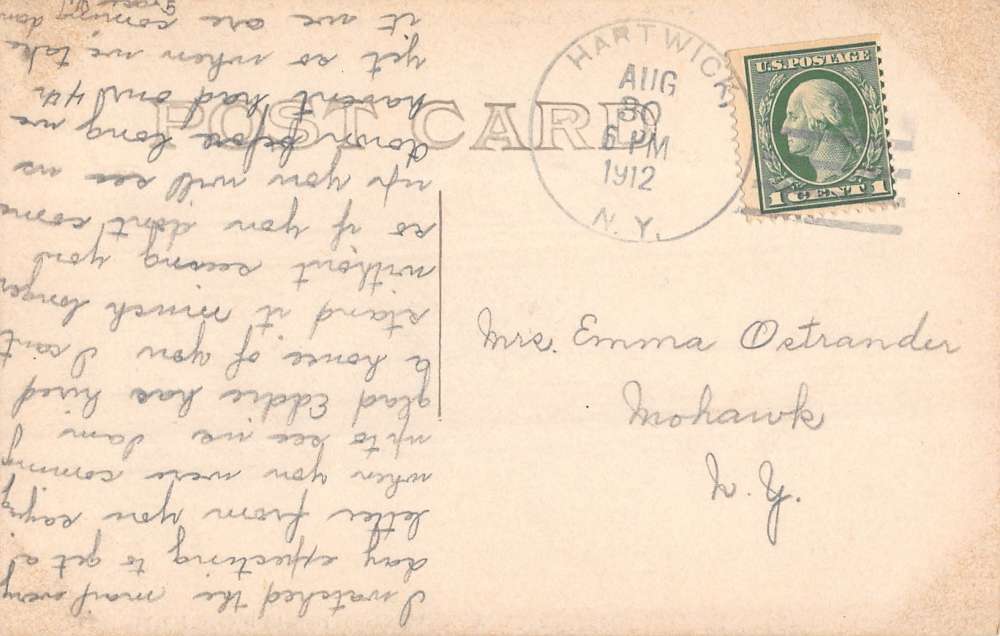 POST CARD
HARTWICK
AUG
30
6 PM
1912
N. Y.
U.S. POSTAGE
1 CENT 1
Mrs. Emma Ostrander
Mohawk
N. Y.
I watched the mail every
day expecting to get a
letter from you saying
when you were coming
up to see me I am
glad Eddie has hired
a house of you I cant
stand it much longer
without seeing you
so if you dont come
up you will see us
down before long we
havent had our 4th
yet so when we take
it we are coming down
Grace